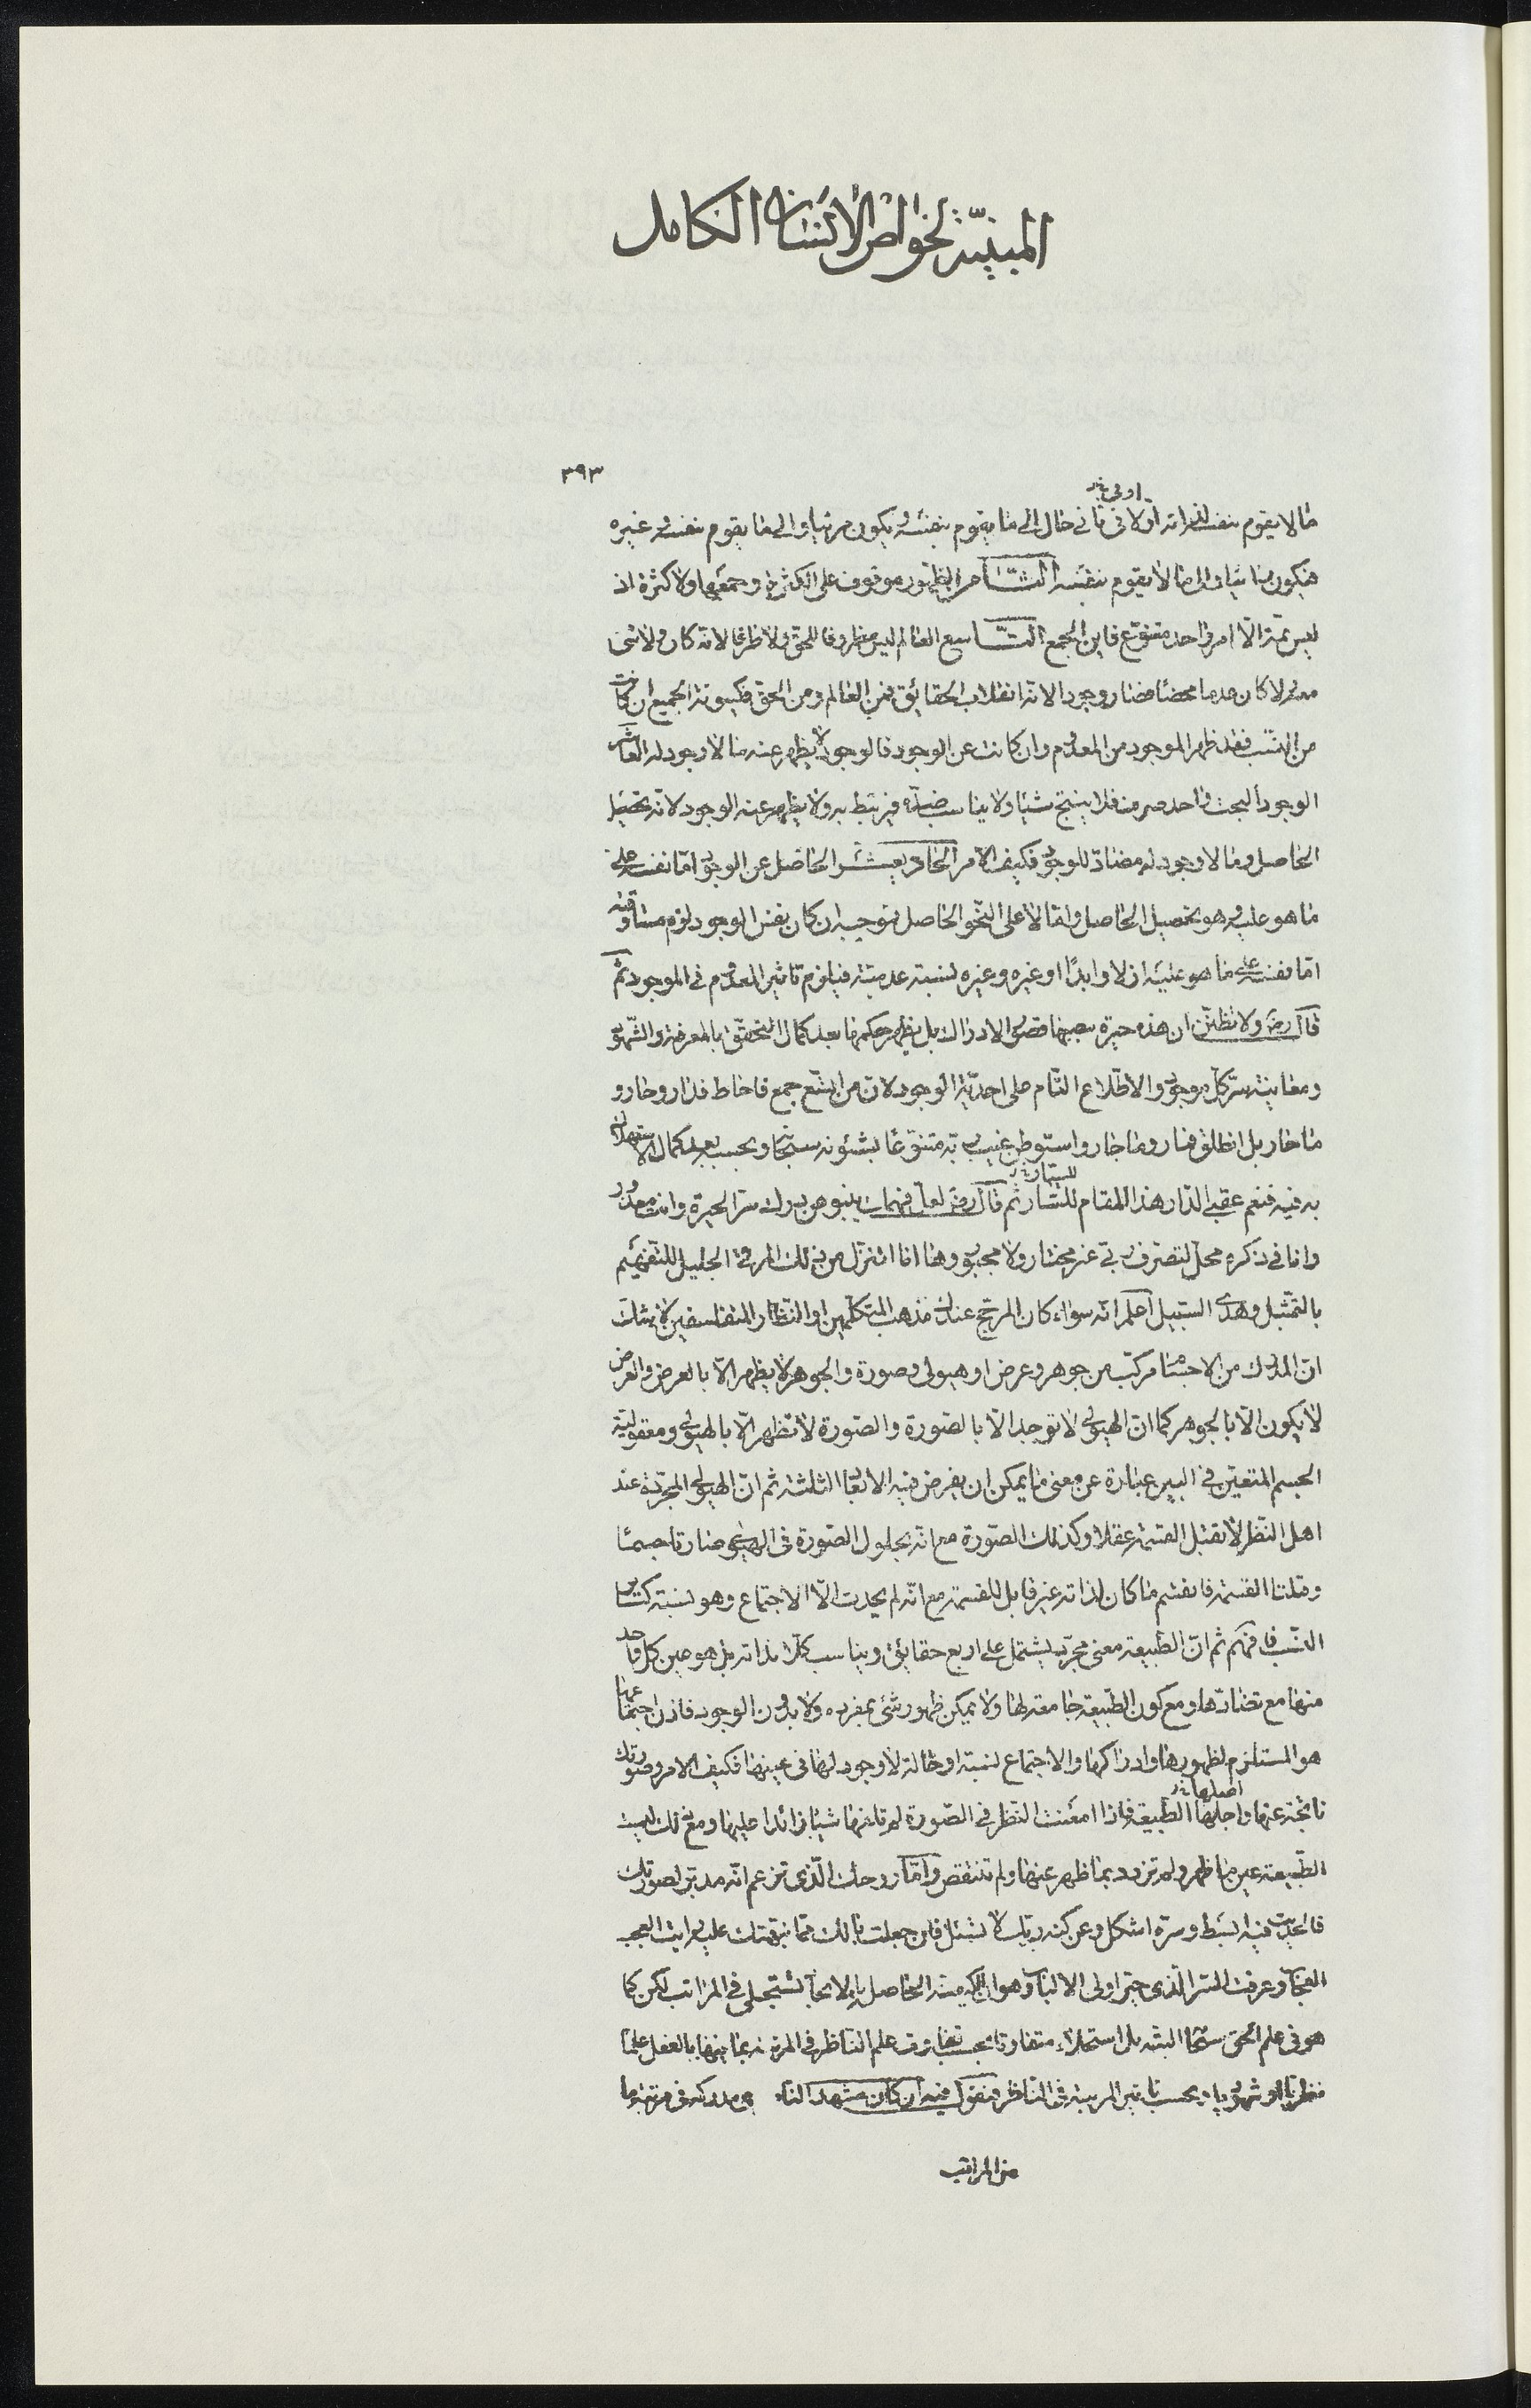 المبينة لخواص الانسان الكامل
٣٩٣
اولى نخ
ما لا يقوم بنفسه لذاته اولا فى ثانى حال الى ما يقوم بنفسه فيكون مرئيا والى ما يقوم بنفسه غيره
فيكون مناسبا والى ما لا يقوم بنفسه الثامن الظهور موقوف على الكثرة وجمعها ولا كثرة اذ
ليس ثمة الا امر واحد متنوع فاين الجمع التاسع العالم ليس مظروفا للحق ولا ظرفا لانه كان ولا شئ
معه ولا كان عدما محضا فصار وجودا لانه انقلاب الحقائق فمن العالم ومن الحق فكينونة الجميع ان كانت
من النسب فقد ظهر الموجود من المعدوم وان كانت عن الوجود فالوجود لا يظهر عنه ما لا وجود له العاشر
الوجود البحت واحد صرف فلا ينتج شيئا ولا يناسب ضده فيرتبط به ولا يظهر عنه الوجود لانه تحصيل
الحاصل وما لا وجود له مضاد للوجود فكيف الامر الحادى عشر الحاصل عن الوجود اما نفسه على
ما هو عليه هو تحصيل الحاصل واما لا على النحو الحاصل فموجبه ان كان نفس الوجود لزم مساوقته
اما نفسه على ما هو عليه ازلا وابدا او غيره وغيره نسبة عدمية فيلزم تاثير المعدوم فى الموجود ثم
قال رض ولا تظنن ان هذه حيرة سببها قصور الادراك بل يظهر حكمها بعد كمال التحقق بالمعرفة والشهود
ومعاينة سر كل موجود والاطلاع التام على احدية الوجود لان من اتسع جمع فاحاط فدار وحار و
ما حار بل انطلق فسار وما جار واستوطن غيب ربه متنوعا بشئونه سبحانه وبحسبه بعد كمال الاستهلاك
للسيار نخ
به فيه فنعم عقبى الدار هذا المقام للسار ثم قال رض لعل فهمك ينبو عن درك سر الحيرة وانت معذور
وانا فى ذكره محل لتصرف ربى غير مختار ولا مجبور وها انا اتنزل من ذلك المرقى الجليل للتفهيم
بالتمثيل وهدى السبيل اعلم انه سواء كان المرجح عندك مذهب المتكلمين او النظار المتفلسفين لا نشك
ان المدرك من الاجسام مركب من جوهر وعرض او هيولى وصورة والجوهر لا يظهر الا بالعرض والعرض
لا يكون الا بالجوهر كما ان الهيولى لا توجد الا بالصورة والصورة لا تظهر الا بالهيولى ومعقولية
الجسم المتعين فى البين عبارة عن معنى ما يمكن ان يفرض فيه الابعاد الثلثة ثم ان الهيولى المجردة عند
اهل النظر لا تقبل القسمة عقلا وكذلك الصورة مع انه بحلول الصورة فى الهيولى صارتا جسما
وقبلتا القسمة فانقسم ما كان لذاته غير قابل للقسمة مع انه لم يحدث الا الاجتماع وهو نسبة كسائر
النسب فافهم ثم ان الطبيعة معنى مجرد يشتمل على اربع حقائق ويناسب كلا بذاته بل هو عين كل واحد
منها مع تضادها ومع كون الطبيعة جامعة لها ولا يمكن ظهور شئ بمفرده ولا بدون الوجود فاذن اجتماعها
هو المستلزم لظهورها وادراكها والاجتماع نسبة او حالة لا وجود لها فى عينها فكيف الامر وصورتك
اصلها نخ
ناتجة عنها واجلها الطبيعة فاذا امعنت النظر فى الصورة لم تلفها شيئا زائدا عليها ومع ذلك ليست
الطبيعة عين ما ظهر ولم تزدد بما ظهر عنها ولم تنتقص واما روحك الذى تزعم انه مدبر لصورتك
فالحديث فيه ابسط وسره اشكل وعن كنه ربك لا تسئل فان جعلت بالك مما نبهتك عليه رايت العجب
العجاب وعرفت السر الذى حير اولى الالباب وهو الكيفية الحاصل بالايجاد لتستجلى فى المراتب لكن كما
هو فى علم الحق سبحانه البتة بل استجلاء متفاوتا بحسب تفاوت علم الناظر فى المرتبة بما فيها بالفعل علما
نظريا او شهوديا وبحسب تاثير المرتبة فى الناظر فنقول فيه ان كان مشهد الناظر من مدركه فى مرتبة ما
من المراتب